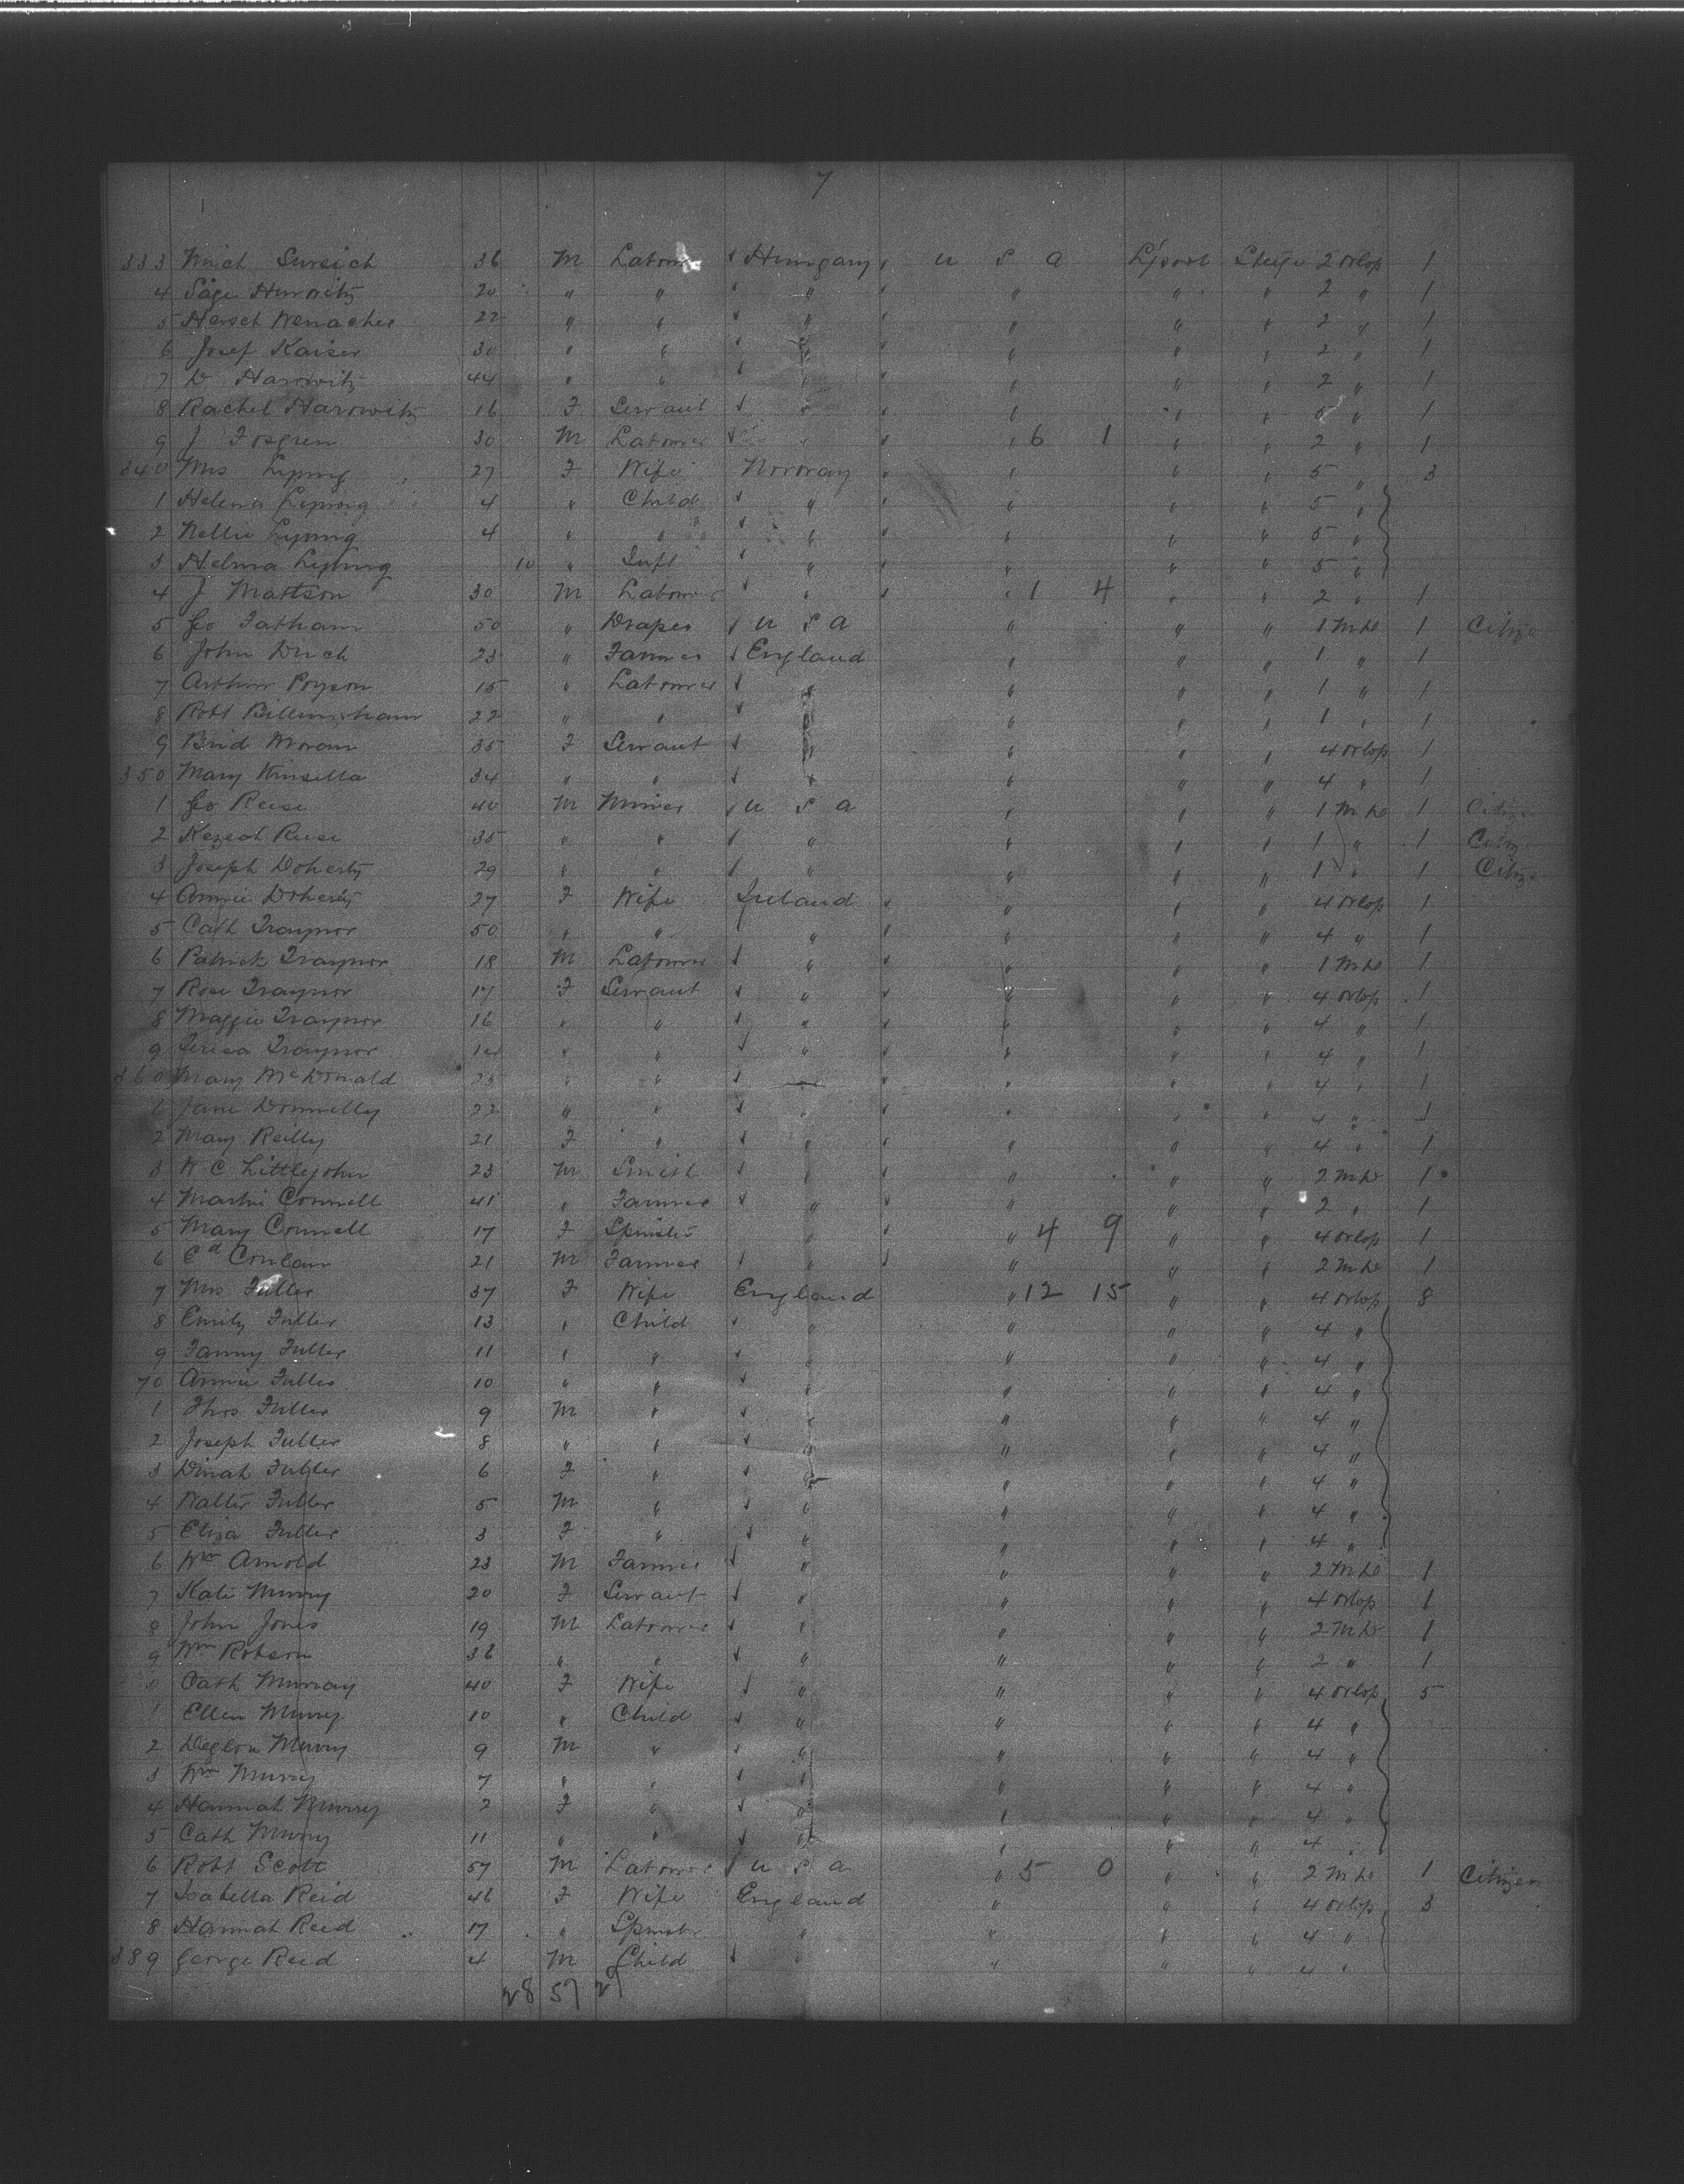 7
333 Mich Sursich 36 M Labourer Hungary U S A L'pool Steige 2 orlop 1
4 Hurwitz 20 " " " " " " 2 " 1
5 Hersch 22 " " " " " " 2 " 1
6 Josef Kaiser 30 " " " " " " 2 " 1
7 D Harowitz 44 " " " " " " 2 " 1
8 Rachel Harowitz 16 F Servant " " " " " 1
9 J Fosgren 30 M Labourer " " 6 1 " " 2 " 1
340 Mrs 27 F Wife Norway " " " 5 " 3
1 Helena 4 " Child " " " " 5 "
2 Nellie 4 " " " " " " 5 "
3 Helma 10 " Inft " " " " 5 "
4 J Mattson 30 M Labourer " " 1 4 " " 2 " 1
5 Geo Tatham 50 " Draper U S A " " " 1 Mde 1
6 John 23 " Farmer England " " " 1 " 1
7 Arthur Poyson 15 " Labourer " " " " 1 " 1
8 Robt 22 " " " " " " 1 " 1
9 Brid Moran 35 F Servant " " " " 4 orlop 1
350 Mary Kinsella 34 " " " " " " 4 " 1
1 Geo Reese 40 M Miner U S A " " " 1 Mde 1
2 Reese 35 " " " " " " 1 " 1
3 Joseph Doherty 29 " " " " " " 1 " 1
4 Annie Doherty 27 F Wife Ireland " " " 4 orlop 1
5 Cath Traynor 50 " " " " " " 4 " 1
6 Patrick Traynor 18 M Labourer " " " " 1 Mde 1
7 Rose Traynor 17 F Servant " " " " 4 orlop 1
8 Maggie Traynor 16 " " " " " " 4 " 1
9 Teresa Traynor 14 " " " " " " 4 " 1
360 Mary McDonald " " " " " 4 " 1
1 Jane Donnelly 22 " " " " " 4 " 1
2 Mary Reilly 21 F " " " " " 4 " 1
3 Littlejohn 23 M Smith " " " " 2 Mde 1
4 Martin Connell 41 " Farmer " " " " 2 " 1
5 Mary Connell 17 F Spinster " " 4 9 " " 4 orlop 1
6 Ed Conlan 21 M Farmer " " " " 2 Mde 1
7 Mrs Fuller 37 F Wife England " 12 15 " " 4 orlop 8
8 Emily Fuller 13 " Child " " " " 4 "
9 Fanny Fuller 11 " " " " " " 4 "
70 Annie Fuller 10 " " " " " " 4 "
1 Thos Fuller 9 M " " " " " 4 "
2 Joseph Fuller 8 " " " " " " 4 "
3 Dinah Fuller 6 F " " " " " 4 "
4 Walter Fuller 5 M " " " " " 4 "
5 Eliza Fuller 3 F " " " " " 4 "
6 Wm Arnold 23 M Farmer " " " " 2 Mde 1
7 Kate Murry 20 F Servant " " " " 4 orlop 1
8 John Jones 19 M Labourer " " " " 2 Mde 1
9 Wm Robson 36 " " " " " " 2 " 1
0 Cath Murray 40 F Wife " " " " 4 orlop 5
1 Ellen Murry 10 " Child " " " " 4 "
2 Murry 9 M " " " " " 4 "
3 Wm Murry 7 " " " " " " 4 "
4 Hannah Murry 2 F " " " " " 4 "
5 Cath Murry 11 " " " " " " 4 "
6 Robt Scott 57 M Labourer U S A " 5 0 " " 2 Mde 1 Citizen
7 Isabella Reid 46 F Wife England " " " 4 orlop 3
8 Hannah Reid 17 " Spinster " " " " 4 "
389 George Reid 4 M Child " " " " 4 "
28 57 29